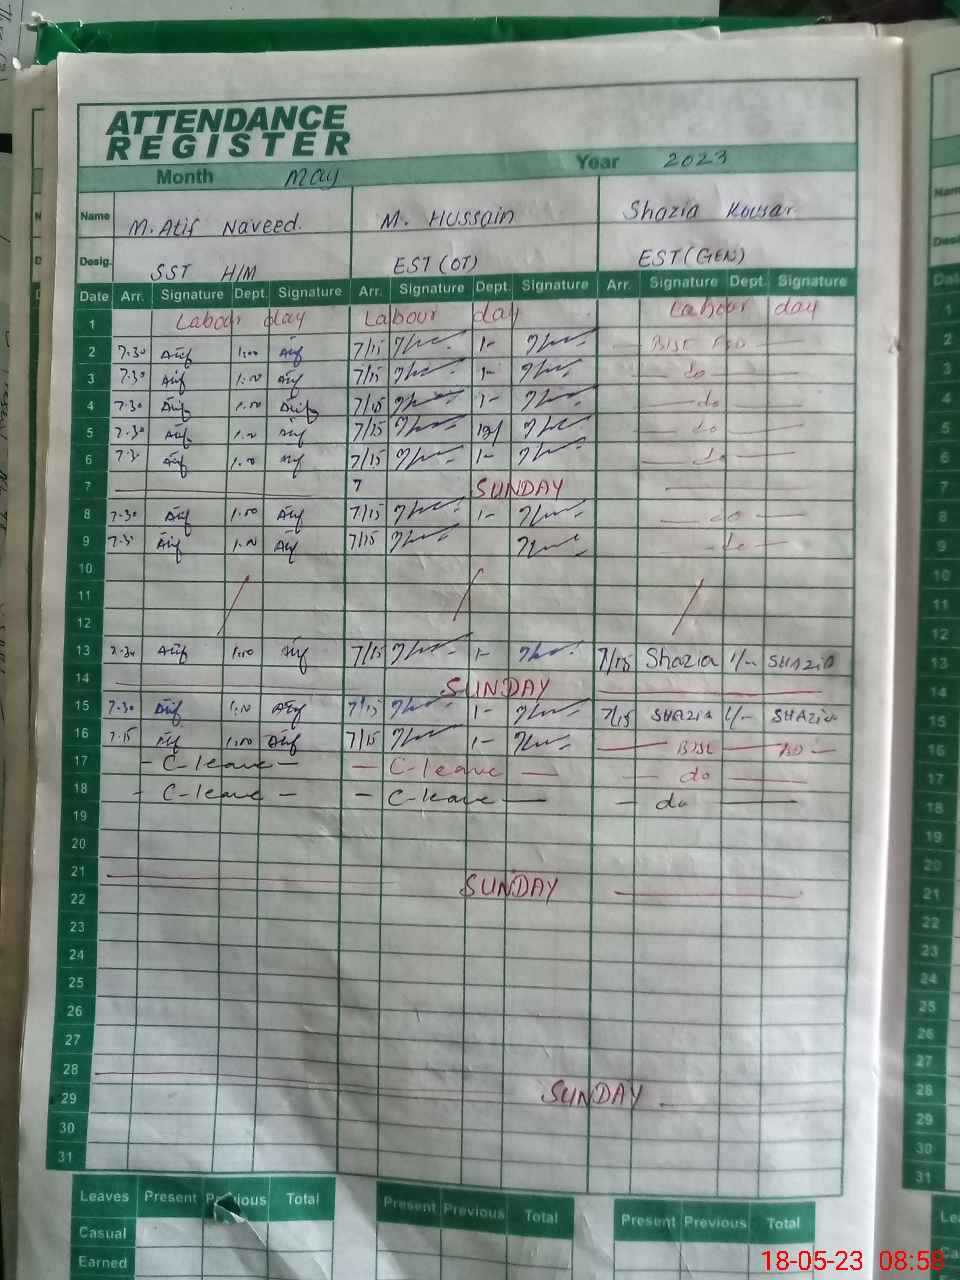 ATTENDANCE
REGISTER
Month May Year 2023
Name M. Atif Naveed. M. Hussain Shazia Kousar.
Desig. SST HIM EST (OT) EST (GEN)
Date Arr. Signature Dept. Signature Arr. Signature Dept. Signature Arr. Signature Dept. Signature
1 Labour day Labour day Labour day
2 7.30 Atif 1.00 Atif 7/15 1-
3 7.30 Atif 1.00 Atif 7/15 1- do
4 7.30 Atif 1.00 Atif 7/15 1- do
5 7.30 Atif 1.00 Atif 7/15 do
6 7.3 Atif 1.00 Atif 7/15 1- do
7 7 SUNDAY
8 7.30 Atif 1.00 Atif 7/15 1- do
9 7.3 Atif 1.00 Atif 7/15 do
10
11
12
13 7.30 Atif 1.00 Atif 7/15 1- 7/15 Shazia 1/- SHAZIA
14 SUNDAY
15 7.30 Atif 1.00 Atif 7/15 1- 7/15 SHAZIA 1/- SHAZIA
16 7.15 Atif 1.00 Atif 7/15 1-
17 - C-leave - - C-leave - - do -
18 - C-leave - - C-leave - - do -
19
20
21 SUNDAY
22
23
24
25
26
27
28 SUNDAY
29
30
31
Leaves Present Previous Total Present Previous Total Present Previous Total
Casual
Earned
18-05-23 08:58